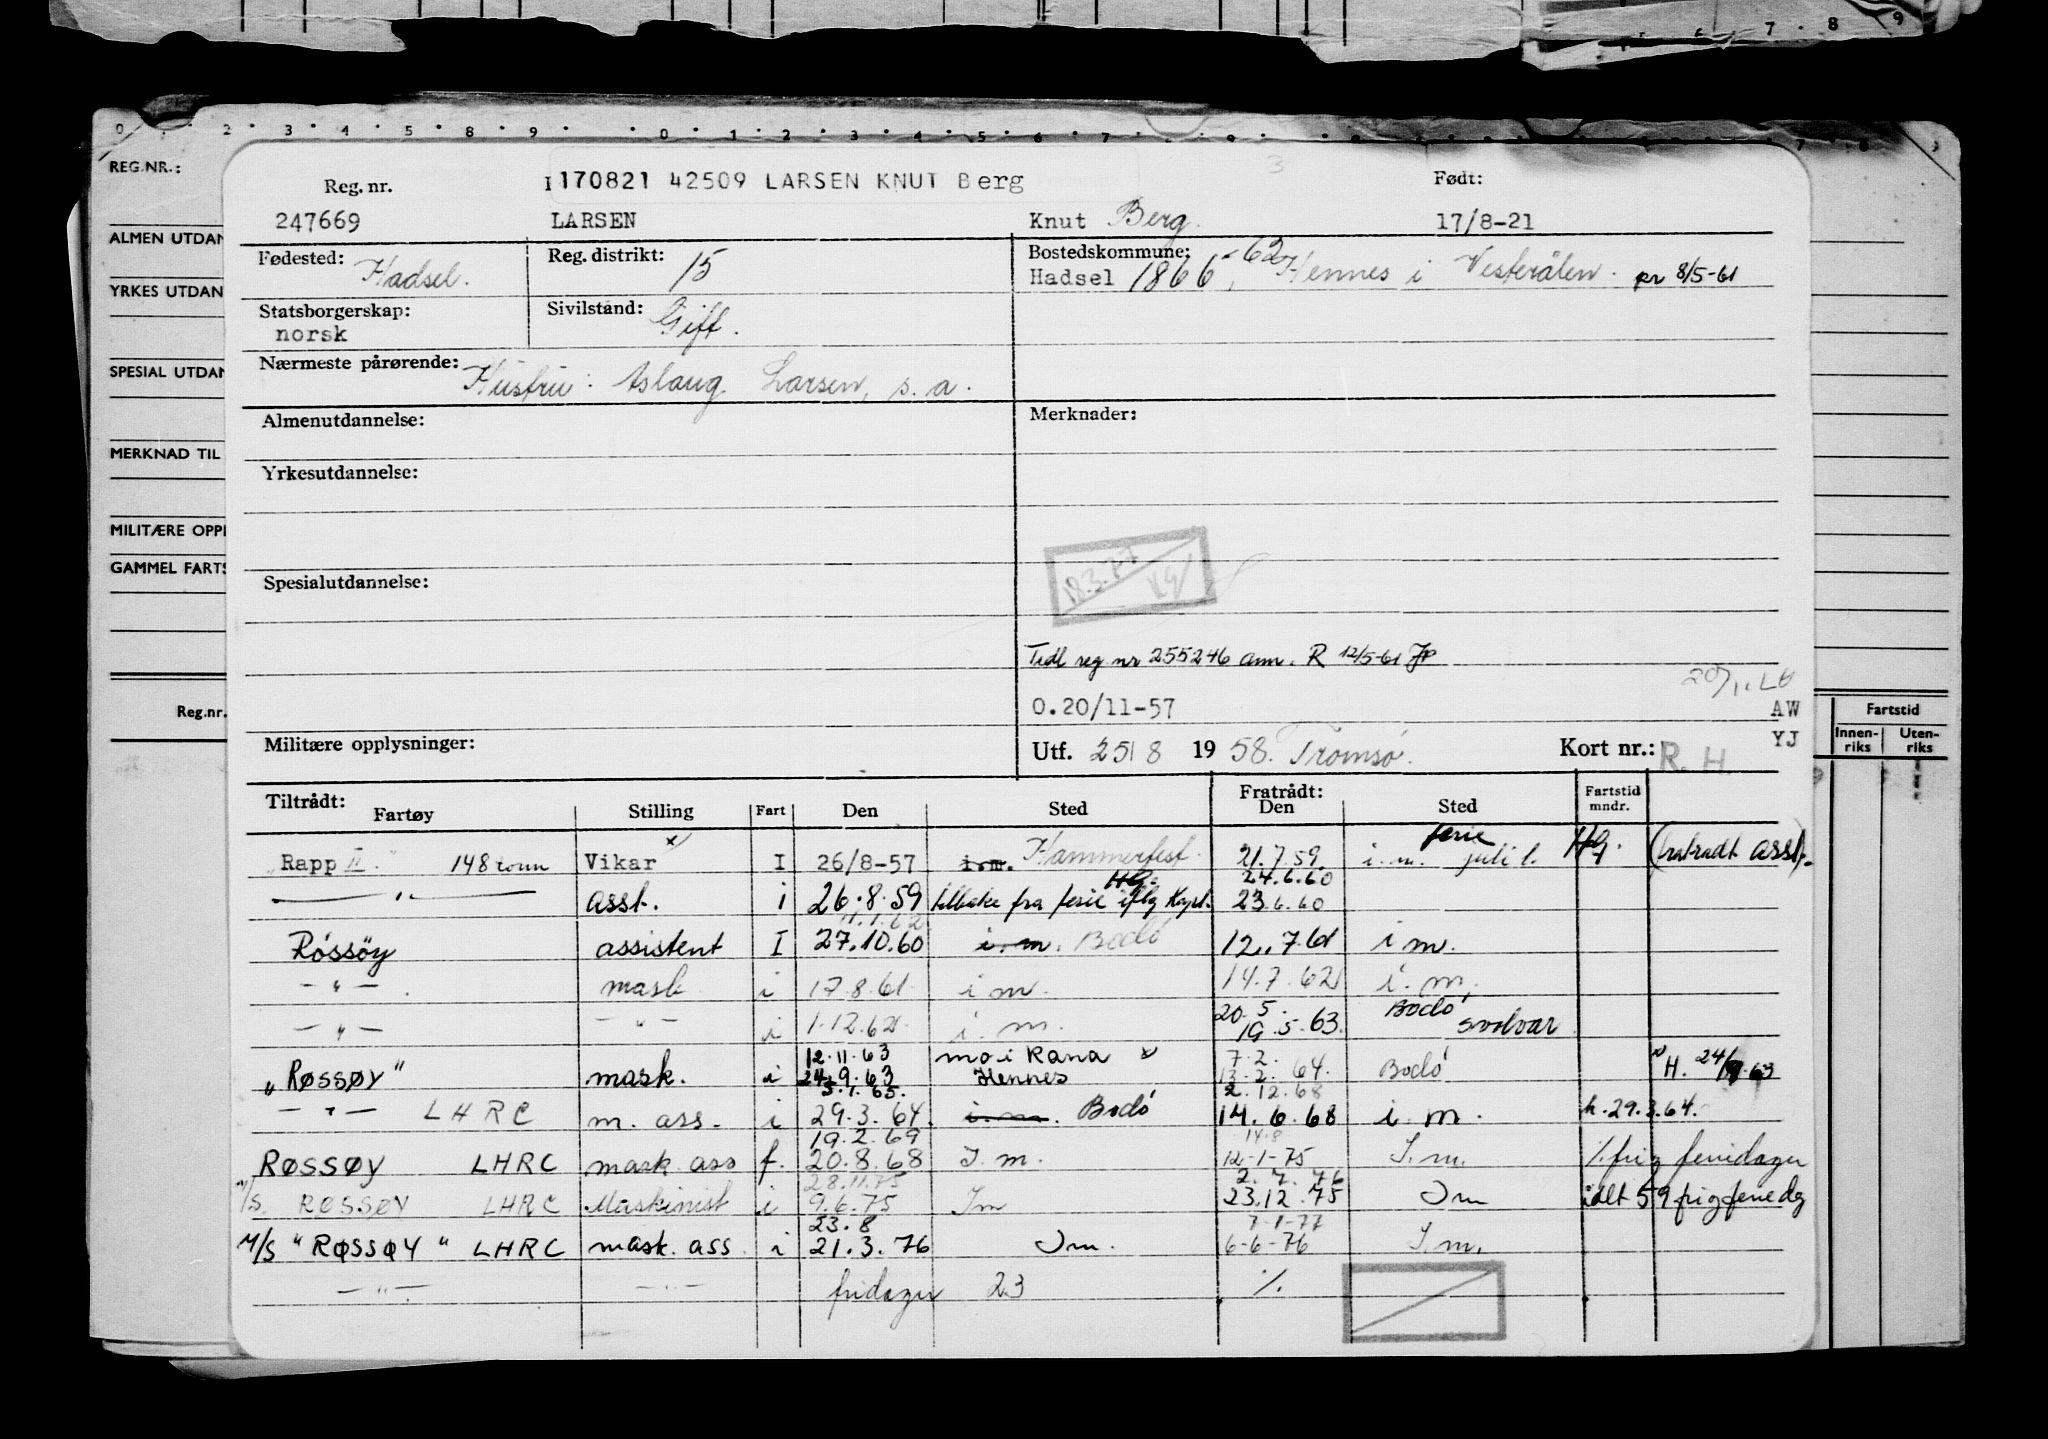 7 · 8 · 9
0 · 1 · 2 · 3 · 4 · 5 · 8 · 9 · 0 · 1 · 2 · 3 · 4 · 5 · 6 · 7
REG.NR.:
ALMEN UTDAN
YRKES UTDAN
SPESIAL UTDAN
MERKNAD TIL
MILITÆRE OPPL
GAMMEL FARTS
Reg.nr.
Fartstid
Innen-riks Uten-riks
3
Reg. nr. I 170821 42509 LARSEN KNUT Berg Født:
247669 LARSEN Knut Berg. 17/8-21
Fødested: Hadsel. Reg. distrikt: 15 Bostedskommune: - 62
Hadsel 1866, Hennes i Vesterålen. pr 8/5-61
Statsborgerskap: norsk Sivilstand: Gift.
Nærmeste pårørende: Hustru: Aslaug Larsen, s. a.
Almenutdannelse: Merknader:
Yrkesutdannelse:
18.3.77
Spesialutdannelse:
Tidl reg nr 255246 ann. R 12/5-61
O.20/11-57 AW
Militære opplysninger: Utf. 25/8 1958. Tromsø. Kort nr.: R. H. YJ
Tiltrådt: Fratrådt: Fartstid
Fartøy Stilling Fart Den Sted Den Sted mndr.
"Rapp II" 148 tonn Vikar x/ I 26/8-57 i.m. Hammerfest 21.7.59 i. m. ferie juli l. HG. (fratrådt asst.
24.6.60
— " — asst. i 26.8.59 tilbake fra ferie iflg Kapt. HG. 23.6.60
11.1.62
Røssøy assistent I 27.10.60 i. m. Bodø 12.7.61 i m.
— " — . mask i 17.8.61 i m. 14.7.62 i. m.
20. 5. Bodø
— " — — " — i 1.12.62 i. m. 19.5.63. Svolvær
12.11.63 mo i Rana x 7.2.
"RØSSØY" mask. i 24.9.63 Hennes 13.2.64. Bodø H. 24/9.63
5.1.65. 2.12.68
— " — LHRC m. ass. i 29.3.64. i. m. Bodø 14.6.68 i. m. h.29.3.64.
19.2.69 14.8
RØSSØY LHRC mask. ass f. 20.8.68 I. m. 12-1-75 I. m. % frig feridager
28.11.75 2.7.76
M/S. RØSSØY LHRC Maskinist i 9.6.75 Im 23.12.75 Im idlt 59 frig feriedg
23.8 7-1-77
M/S "RØSSØY" LHRC mask. ass. i 21.3.76 Im. 6-6-76 I. m.
— " — — " — fridager 23 %.